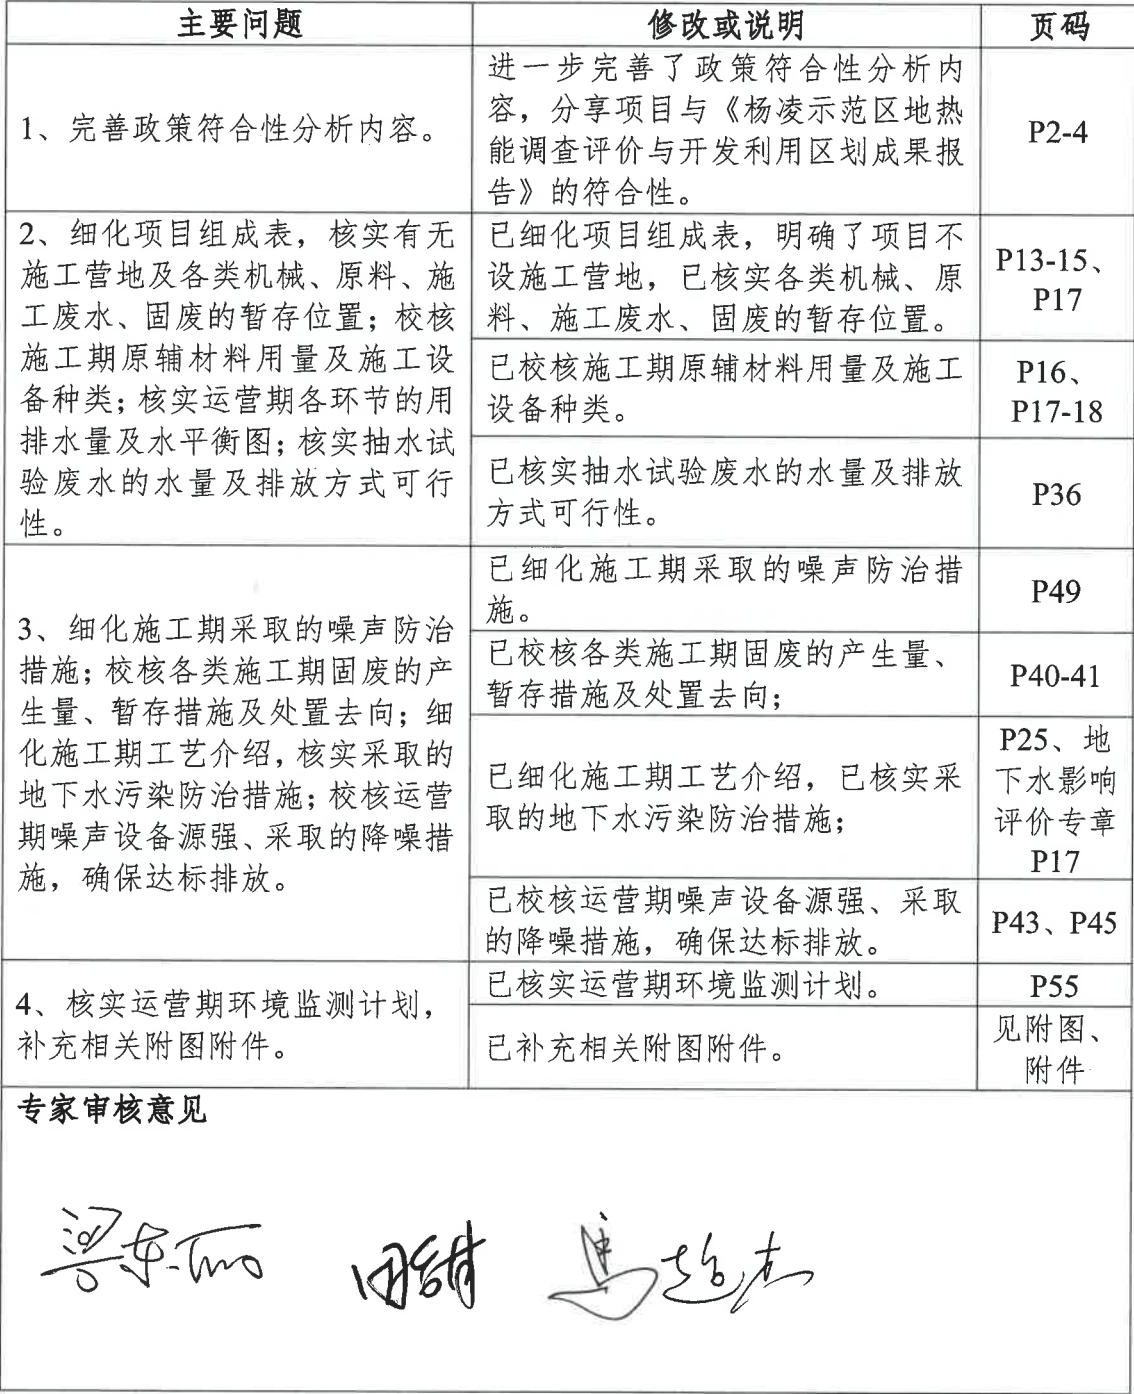 主要问题
修改或说明
页码
1、完善政策符合性分析内容。
进一步完善了政策符合性分析内
容，分享项目与《杨凌示范区地热
能调查评价与开发利用区划成果报
告》的符合性。
P2-4
2、细化项目组成表，核实有无
施工营地及各类机械、原料、施
工废水、固废的暂存位置；校核
施工期原辅材料用量及施工设
备种类；核实运营期各环节的用
排水量及水平衡图；核实抽水试
验废水的水量及排放方式可行
性。
已细化项目组成表，明确了项目不
设施工营地，已核实各类机械、原
料、施工废水、固废的暂存位置。
P13-15、
P17
已校核施工期原辅材料用量及施工
设备种类。
P16、
P17-18
已核实抽水试验废水的水量及排放
方式可行性。
P36
3、细化施工期采取的噪声防治
措施；校核各类施工期固废的产
生量、暂存措施及处置去向；细
化施工期工艺介绍，核实采取的
地下水污染防治措施；校核运营
期噪声设备源强、采取的降噪措
施，确保达标排放。
已细化施工期采取的噪声防治措
施。
P49
已校核各类施工期固废的产生量、
暂存措施及处置去向；
P40-41
已细化施工期工艺介绍，已核实采
取的地下水污染防治措施；
P25、地
下水影响
评价专章
P17
已校核运营期噪声设备源强、采取
的降噪措施，确保达标排放。
P43、P45
4、核实运营期环境监测计划，
补充相关附图附件。
已核实运营期环境监测计划。
P55
已补充相关附图附件。
见附图、
附件
专家审核意见